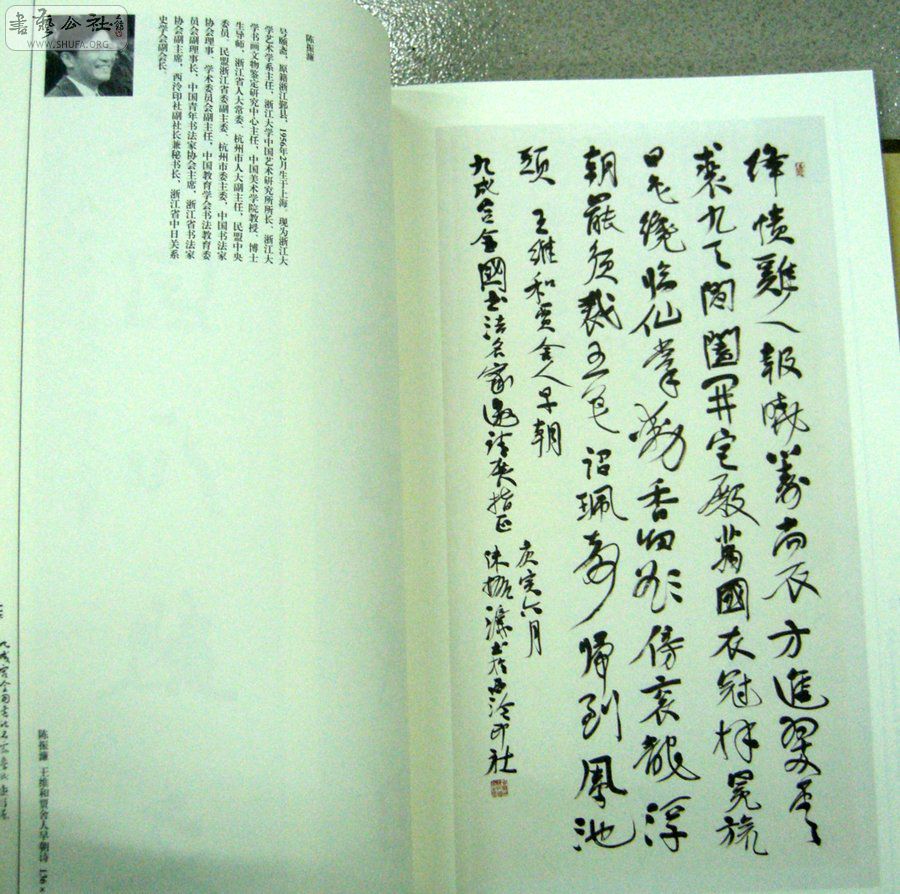 書藝公社
WWW.SHUFA.ORG
绛幘雞人報曉籌尚衣方進翠雲
裘九天閶闔開宫殿萬國衣冠拜冕旒
日色纔臨仙掌動香烟欲傍衮龍浮
朝罷須裁五色詔珮聲歸到鳳池
頭 王維和賈舍人早朝
庚寅六月
九成宫全國書法名家邀請展指正 陳振濂書於西泠印社
陈振濂
号颐斋，原籍浙江鄞县，1956年2月生于上海。现为浙江大
学艺术学系主任、浙江大学中国艺术研究所所长、浙江大
学书画文物鉴定研究中心主任、中国美术学院教授、博士
生导师、浙江省人大常委、杭州市人大副主任、民盟中央
委员、民盟浙江省委副主委、杭州市委主委、中国书法家
协会理事、学术委员会副主任、中国教育学会书法教育委
员会副理事长、中国青年书法家协会主席、浙江省书法家
协会副主席、西泠印社副社长兼秘书长、浙江省中日关系
史学会副会长。
陈振濂 王维和贾舍人早朝诗 136×